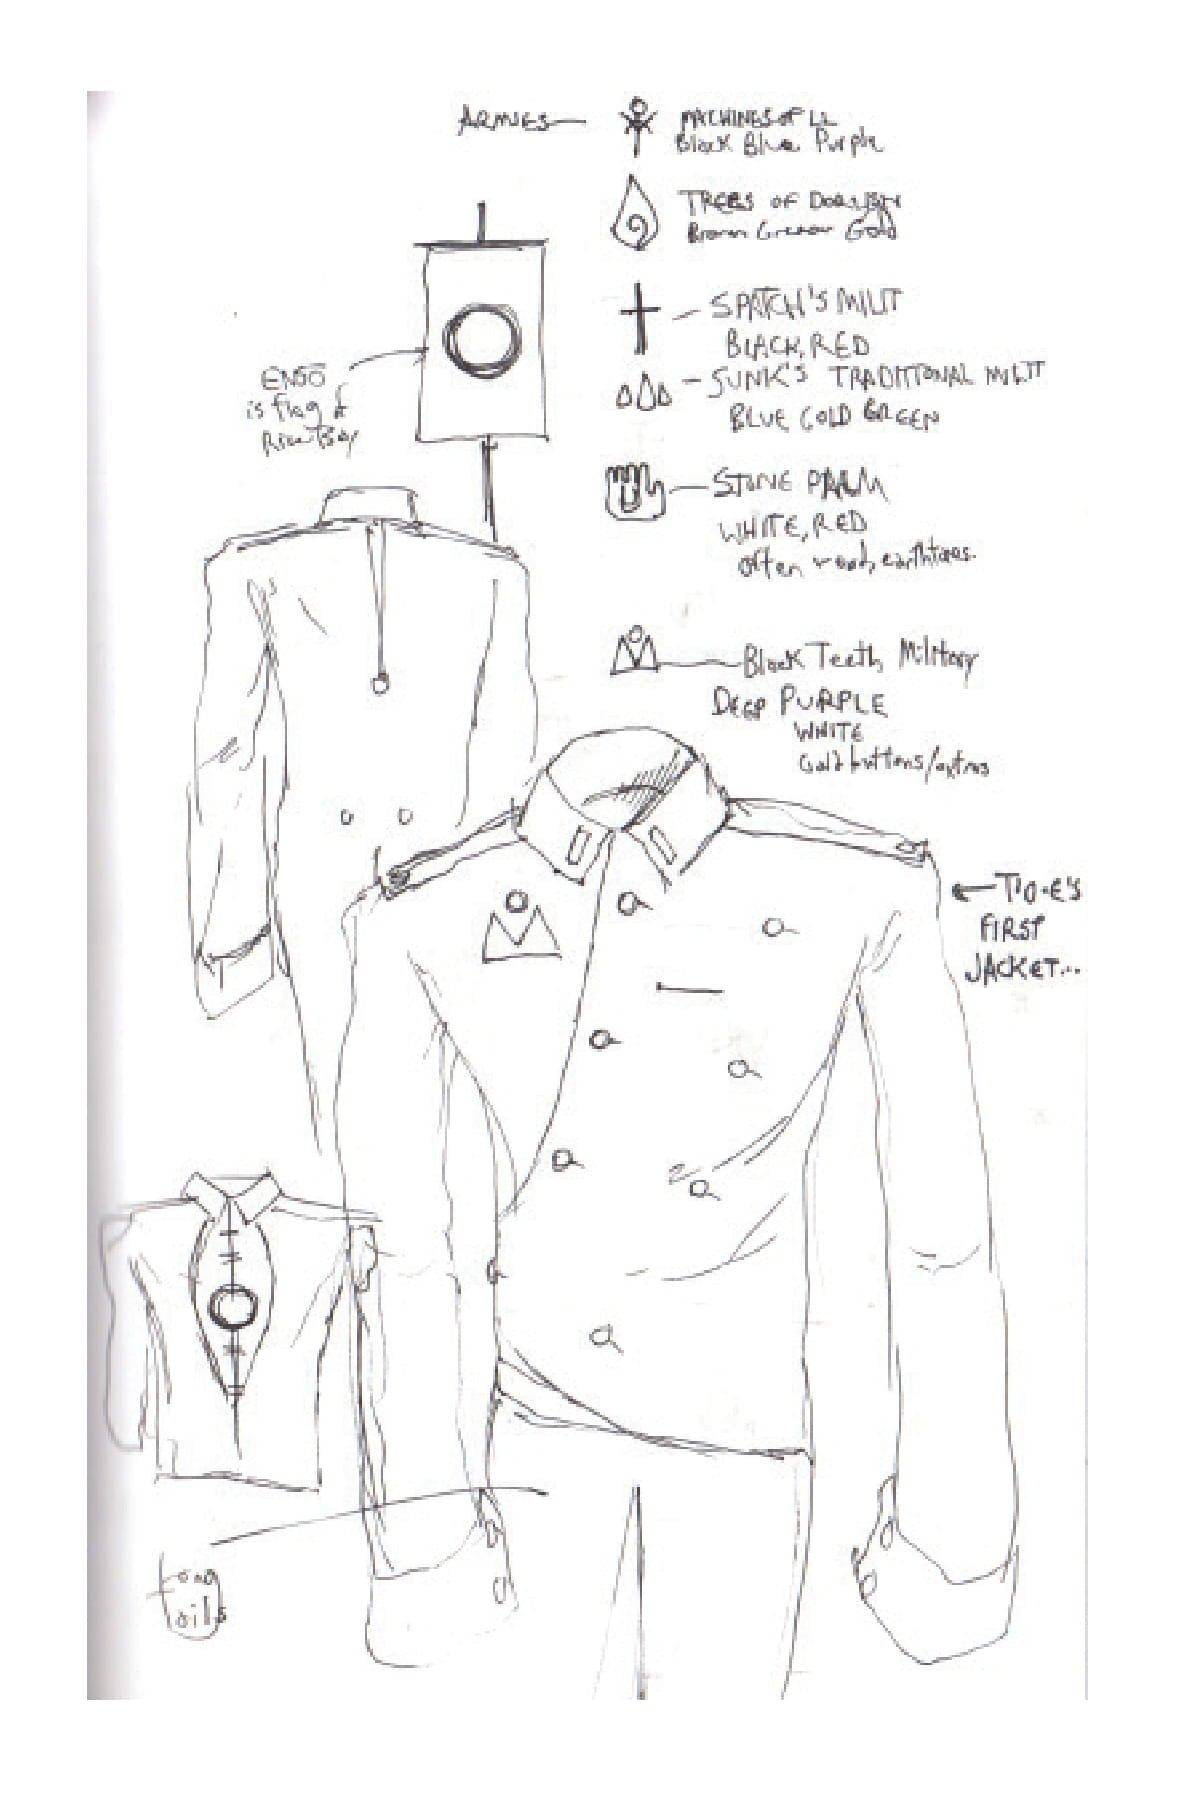 ARMIES
MACHINES OF
Black Blue Purple
TREES OF
Brown Green Gold
SPATCH'S MILIT
BLACK, RED
SUNK'S TRADITIONAL MILIT
BLUE GOLD GREEN
ENSŌ
is flag of
STONE PALM
WHITE, RED
often wood, earthtones.
Black Teeth Military
DEEP PURPLE
WHITE
Gold buttons/extras
FIRST
JACKET...